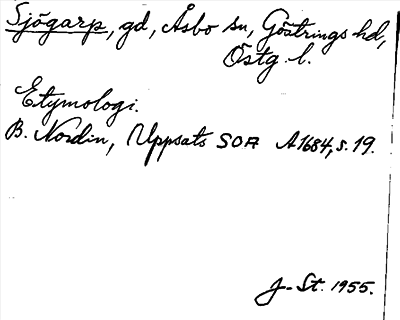 Sjögarp, gd, Åsbo sn, Göstrings hd,
Östg. l.
Etymologi.
B. Nordin, Uppsats SOA A1684, s. 19.
J-St. 1955.